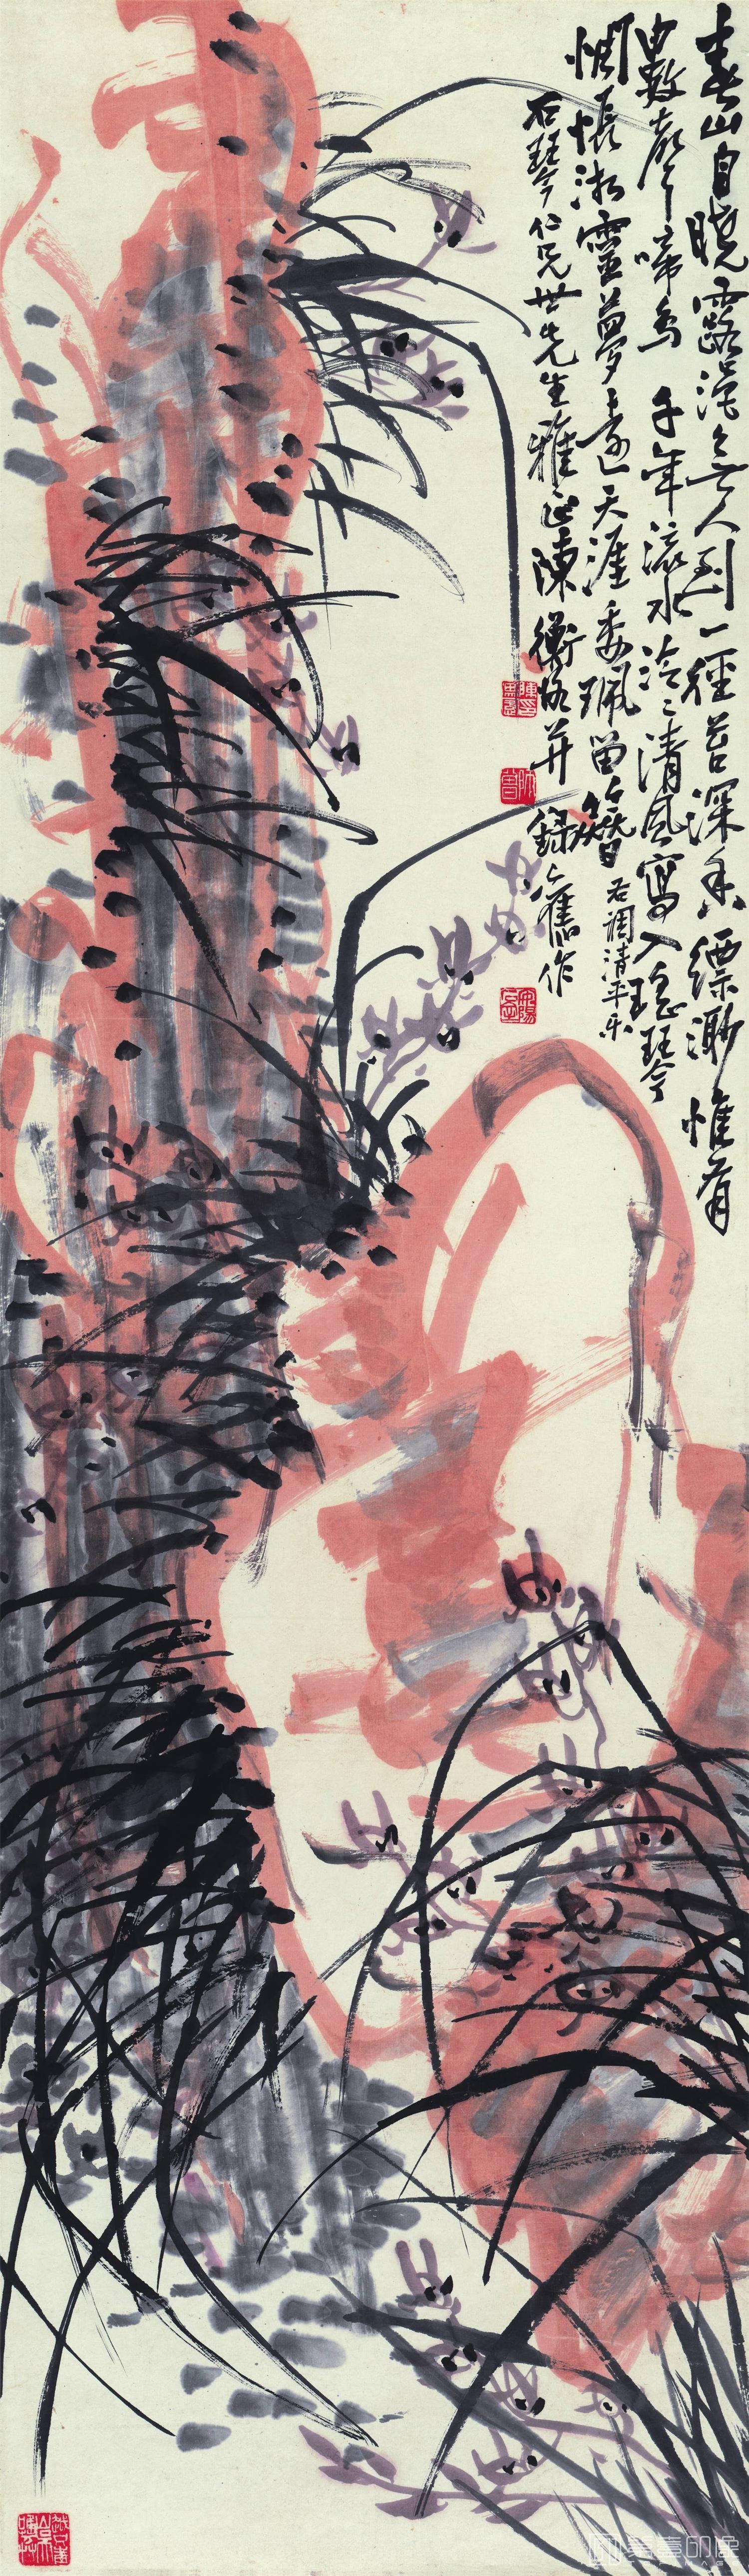 春山自曉露浥無人到一徑苔深香縹渺惟有
數聲啼鳥千年流水泠〻清風寫入瑤琴
惆悵湘靈夢遠天涯委珮留簪 右調清平樂
石琴仁兄世先生雅正陳衡恪并錄舊作
師曾